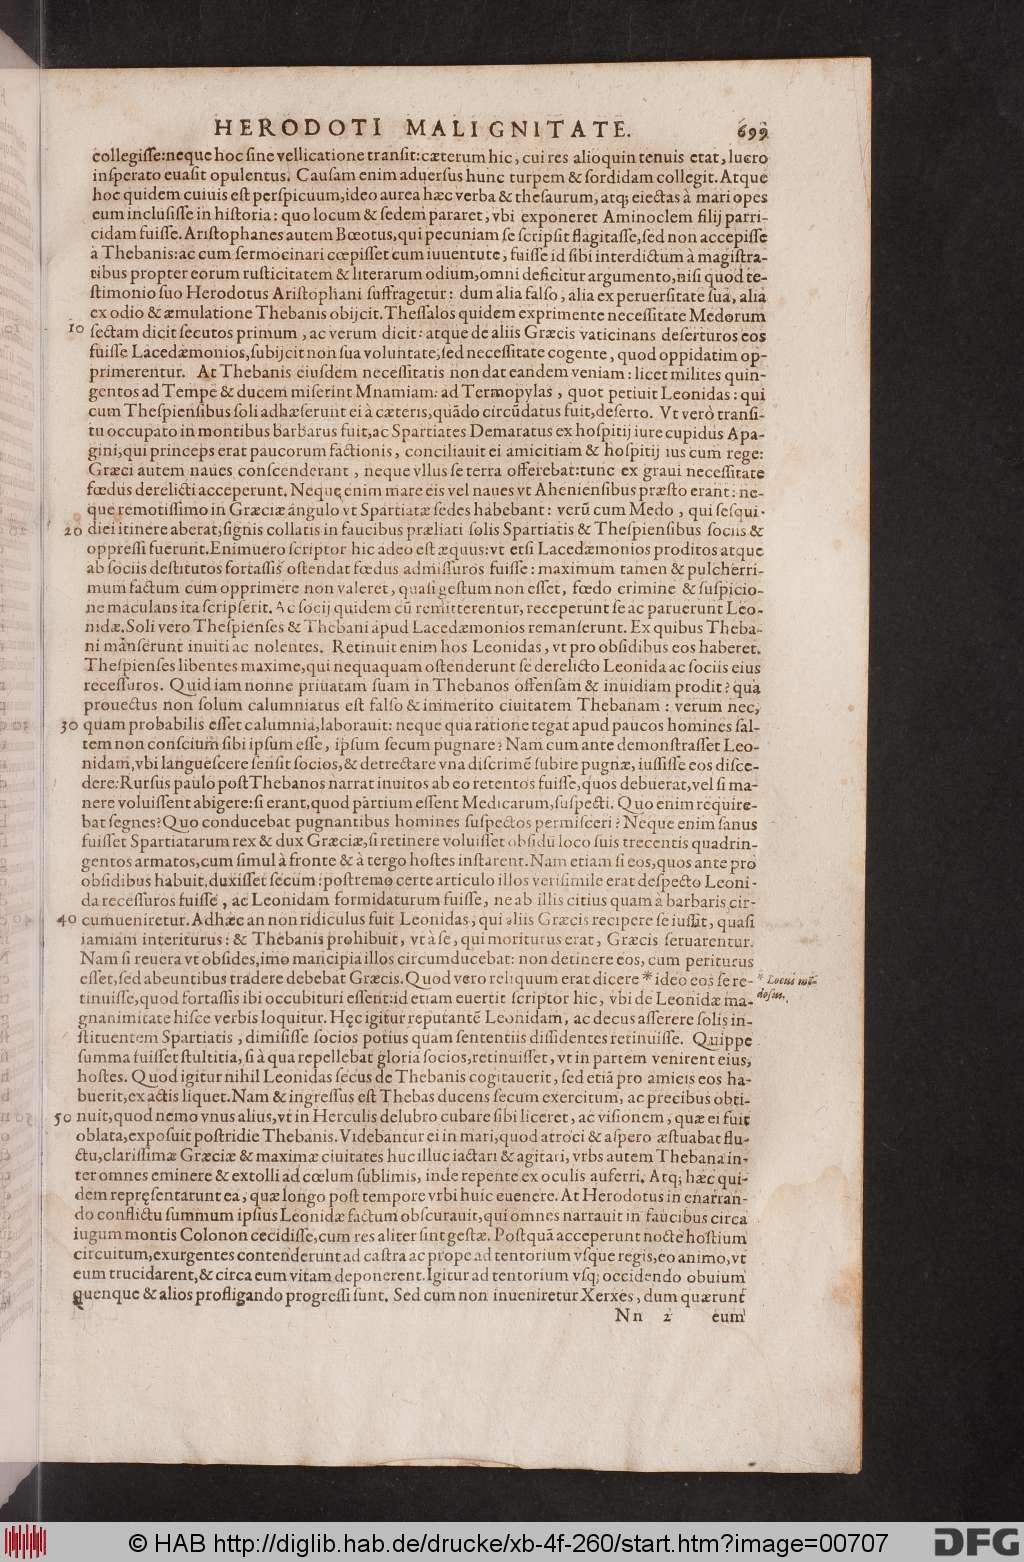 HERODOTI MALIGNITATE. 699
collegiſſe:neque hoc ſine vellicatione tranſit:cæterum hic, cui res alioquin tenuis erat, lucro
inſperato euaſit opulentus. Cauſam enim aduerſus hunc turpem & ſordidam collegit. Atque
hoc quidem cuiuis eſt perſpicuum, ideo aurea hæc verba & theſaurum, atq; eiectas à mari opes
eum incluſiſſe in hiſtoria: quo locum & ſedem pararet, vbi exponeret Aminoclem filij parri-
cidam fuiſſe. Ariſtophanes autem Bœotus, qui pecuniam ſe ſcripſit flagitaſſe, ſed non accepiſſe
à Thebanis: ac cum ſermocinari cœpiſſet cum iuuentute, fuiſſe id ſibi interdictum à magiſtra-
tibus propter eorum ruſticitatem & literarum odium, omni deficitur argumento, niſi quod te-
ſtimonio ſuo Herodotus Ariſtophani ſuffragetur: dum alia falſo, alia ex peruerſitate ſua, alia
ex odio & æmulatione Thebanis obijcit. Theſſalos quidem exprimente neceſſitate Medorum
10 ſectam dicit ſecutos primum, ac verum dicit: atque de aliis Græcis vaticinans deſerturos eos
fuiſſe Lacedæmonios, ſubijcit non ſua voluntate, ſed neceſſitate cogente, quod oppidatim op-
primerentur. At Thebanis eiuſdem neceſſitatis non dat eandem veniam: licet milites quin-
gentos ad Tempe & ducem miſerint Mnamiam: ad Termopylas, quot petiuit Leonidas: qui
cum Theſpienſibus ſoli adhæſerunt ei à cæteris, quādo circūdatus fuit, deſerto. Vt verò tranſi-
tu occupato in montibus barbarus fuit, ac Spartiates Demaratus ex hoſpitij iure cupidus Apa-
gini, qui princeps erat paucorum factionis, conciliauit ei amicitiam & hoſpitij ius cum rege:
Græci autem naues conſcenderant, neque vllus ſe terra offerebat: tunc ex graui neceſſitate
fœdus derelicti acceperunt. Neque enim mare eis vel naues vt Ahenienſibus præſto erant: ne-
que remotiſſimo in Græciæ angulo vt Spartiatæ ſedes habebant: verū cum Medo, qui ſeſqui-
20 diei itinere aberat, ſignis collatis in faucibus præliati ſolis Spartiatis & Theſpienſibus ſociis &
oppreſſi fuerunt. Enimuero ſcriptor hic adeo eſt æquus: vt etſi Lacedæmonios proditos atque
ab ſociis deſtitutos fortaſſis oſtendat fœdus admiſſuros fuiſſe: maximum tamen & pulcherri-
mum factum cum opprimere non valeret, quaſi geſtum non eſſet, fœdo crimine & ſuſpicio-
ne maculans ita ſcripſerit. Ac ſocij quidem cū remitterentur, receperunt ſe ac paruerunt Leo-
nidæ. Soli vero Theſpienſes & Thebani apud Lacedæmonios remanſerunt. Ex quibus Theba-
ni manſerunt inuiti ac nolentes. Retinuit enim hos Leonidas, vt pro obſidibus eos haberet.
Theſpienſes libentes maxime, qui nequaquam oſtenderunt ſe derelicto Leonida ac ſociis eius
receſſuros. Quid iam nonne priuatam ſuam in Thebanos offenſam & inuidiam prodit? qua
prouectus non ſolum calumniatus eſt falſo & immerito ciuitatem Thebanam: verum nec,
30 quam probabilis eſſet calumnia, laborauit: neque qua ratione tegat apud paucos homines ſal-
tem non conſcium ſibi ipſum eſſe, ipſum ſecum pugnare? Nam cum ante demonſtraſſet Leo-
nidam, vbi langueſcere ſenſit ſocios, & detrectare vna diſcrimē ſubire pugnæ, iuſſiſſe eos diſce-
dere: Rurſus paulo poſt Thebanos narrat inuitos ab eo retentos fuiſſe, quos debuerat, vel ſi ma-
nere voluiſſent abigere: ſi erant, quod partium eſſent Medicarum, ſuſpecti. Quo enim require-
bat ſegnes? Quo conducebat pugnantibus homines ſuſpectos permiſceri? Neque enim ſanus
fuiſſet Spartiatarum rex & dux Græciæ, ſi retinere voluiſſet obſidū loco ſuis trecentis quadrin-
gentos armatos, cum ſimul à fronte & à tergo hoſtes inſtarent. Nam etiam ſi eos, quos ante pro
obſidibus habuit, duxiſſet ſecum: poſtremo certe articulo illos veriſimile erat deſpecto Leoni-
da receſſuros fuiſſe, ac Leonidam formidaturum fuiſſe, ne ab illis citius quam a barbaris, cir-
40 cumueniretur. Adhæc an non ridiculus fuit Leonidas, qui aliis Græcis recipere ſe iuſſit, quaſi
iamiam interiturus: & Thebanis prohibuit, vt à ſe, qui moriturus erat, Græcis ſeruarentur.
Nam ſi reuera vt obſides, imo mancipia illos circumducebat: non detinere eos, cum periturus
eſſet, ſed abeuntibus tradere debebat Græcis. Quod vero reliquum erat dicere * ideo eos ſe re- * Locus mē-
tinuiſſe, quod fortaſſis ibi occubituri eſſent: id etiam euertit ſcriptor hic, vbi de Leonidæ ma- doſus.
gnanimitate hiſce verbis loquitur. Hęc igitur reputantē Leonidam, ac decus aſſerere ſolis in-
ſtituentem Spartiatis, dimiſiſſe ſocios potius quam ſententiis diſſidentes retinuiſſe. Quippe
ſumma fuiſſet ſtultitia, ſi à qua repellebat gloria ſocios, retinuiſſet, vt in partem venirent eius,
hoſtes. Quod igitur nihil Leonidas ſecus de Thebanis cogitauerit, ſed etiā pro amicis eos ha-
buerit, ex actis liquet. Nam & ingreſſus eſt Thebas ducens ſecum exercitum, ac precibus obti-
50 nuit, quod nemo vnus alius, vt in Herculis delubro cubare ſibi liceret, ac viſionem, quæ ei fuit
oblata, expoſuit poſtridie Thebanis. Videbantur ei in mari, quod atroci & aſpero æſtuabat flu-
ctu, clariſſimæ Græciæ & maximæ ciuitates huc illuc iactari & agitari, vrbs autem Thebana in-
ter omnes eminere & extolli ad cœlum ſublimis, inde repente ex oculis auferri. Atq; hæc qui-
dem repręſentarunt ea, quæ longo poſt tempore vrbi huic euenere. At Herodotus in enarran-
do conflictu ſummum ipſius Leonidæ factum obſcurauit, qui omnes narrauit in faucibus circa
iugum montis Colonon cecidiſſe, cum res aliter ſint geſtæ. Poſtquā acceperunt nocte hoſtium
circuitum, exurgentes contenderunt ad caſtra ac prope ad tentorium vſque regis, eo animo, vt
eum trucidarent, & circa eum vitam deponerent. Igitur ad tentorium vſq; occidendo obuium
quenque & alios profligando progreſſi ſunt. Sed cum non inueniretur Xerxes, dum quærunt
Nn 2 eum
© HAB http://diglib.hab.de/drucke/xb-4f-260/start.htm?image=00707 DFG